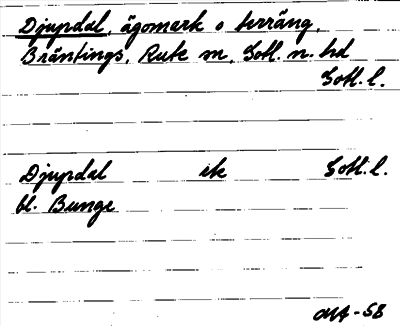 Djupdal, ägomark o terräng,
Bräntings, Rute sn, Gotl. n. hd
Gotl. l.
Djupdal ek Gotl. l.
bl. Bunge